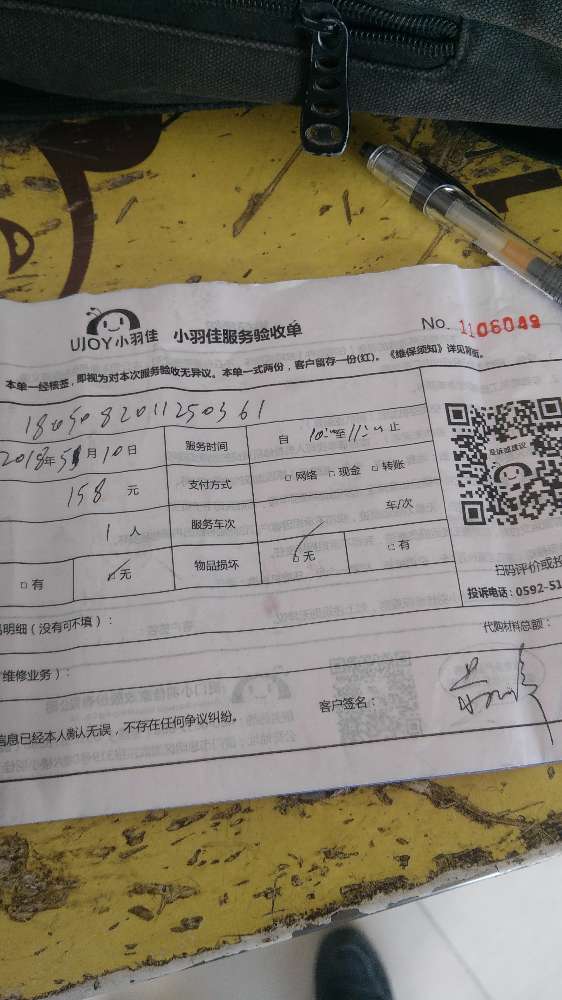 UJOY小羽佳 小羽佳服务验收单 No. 1106049
本单一经核签，即视为对本次服务验收无异议。本单一式两份，客户留存一份(红)。《维保须知》详见背面。
1805082011250361
2018年5月10日 服务时间 自 10:00至11:00止
158元 支付方式 □网络 □现金 □转账
1人 服务车次 车/次
□有 □无 物品损坏 □无 □有
投诉或建议
扫码评价或投
投诉电话：0592-51
明细（没有可不填）： 代购材料总额：
维修业务）：
信息已经本人确认无误，不存在任何争议纠纷。 客户签名：